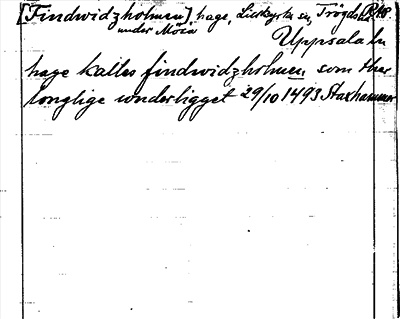 [Findwidzholmen], hage, Lillkyrka sn, Trögds
under Mörn
Uppsala ln
hage kalles findwidzholmen, som ther
longlige wnderligget 29/10 1493 Staxhammar